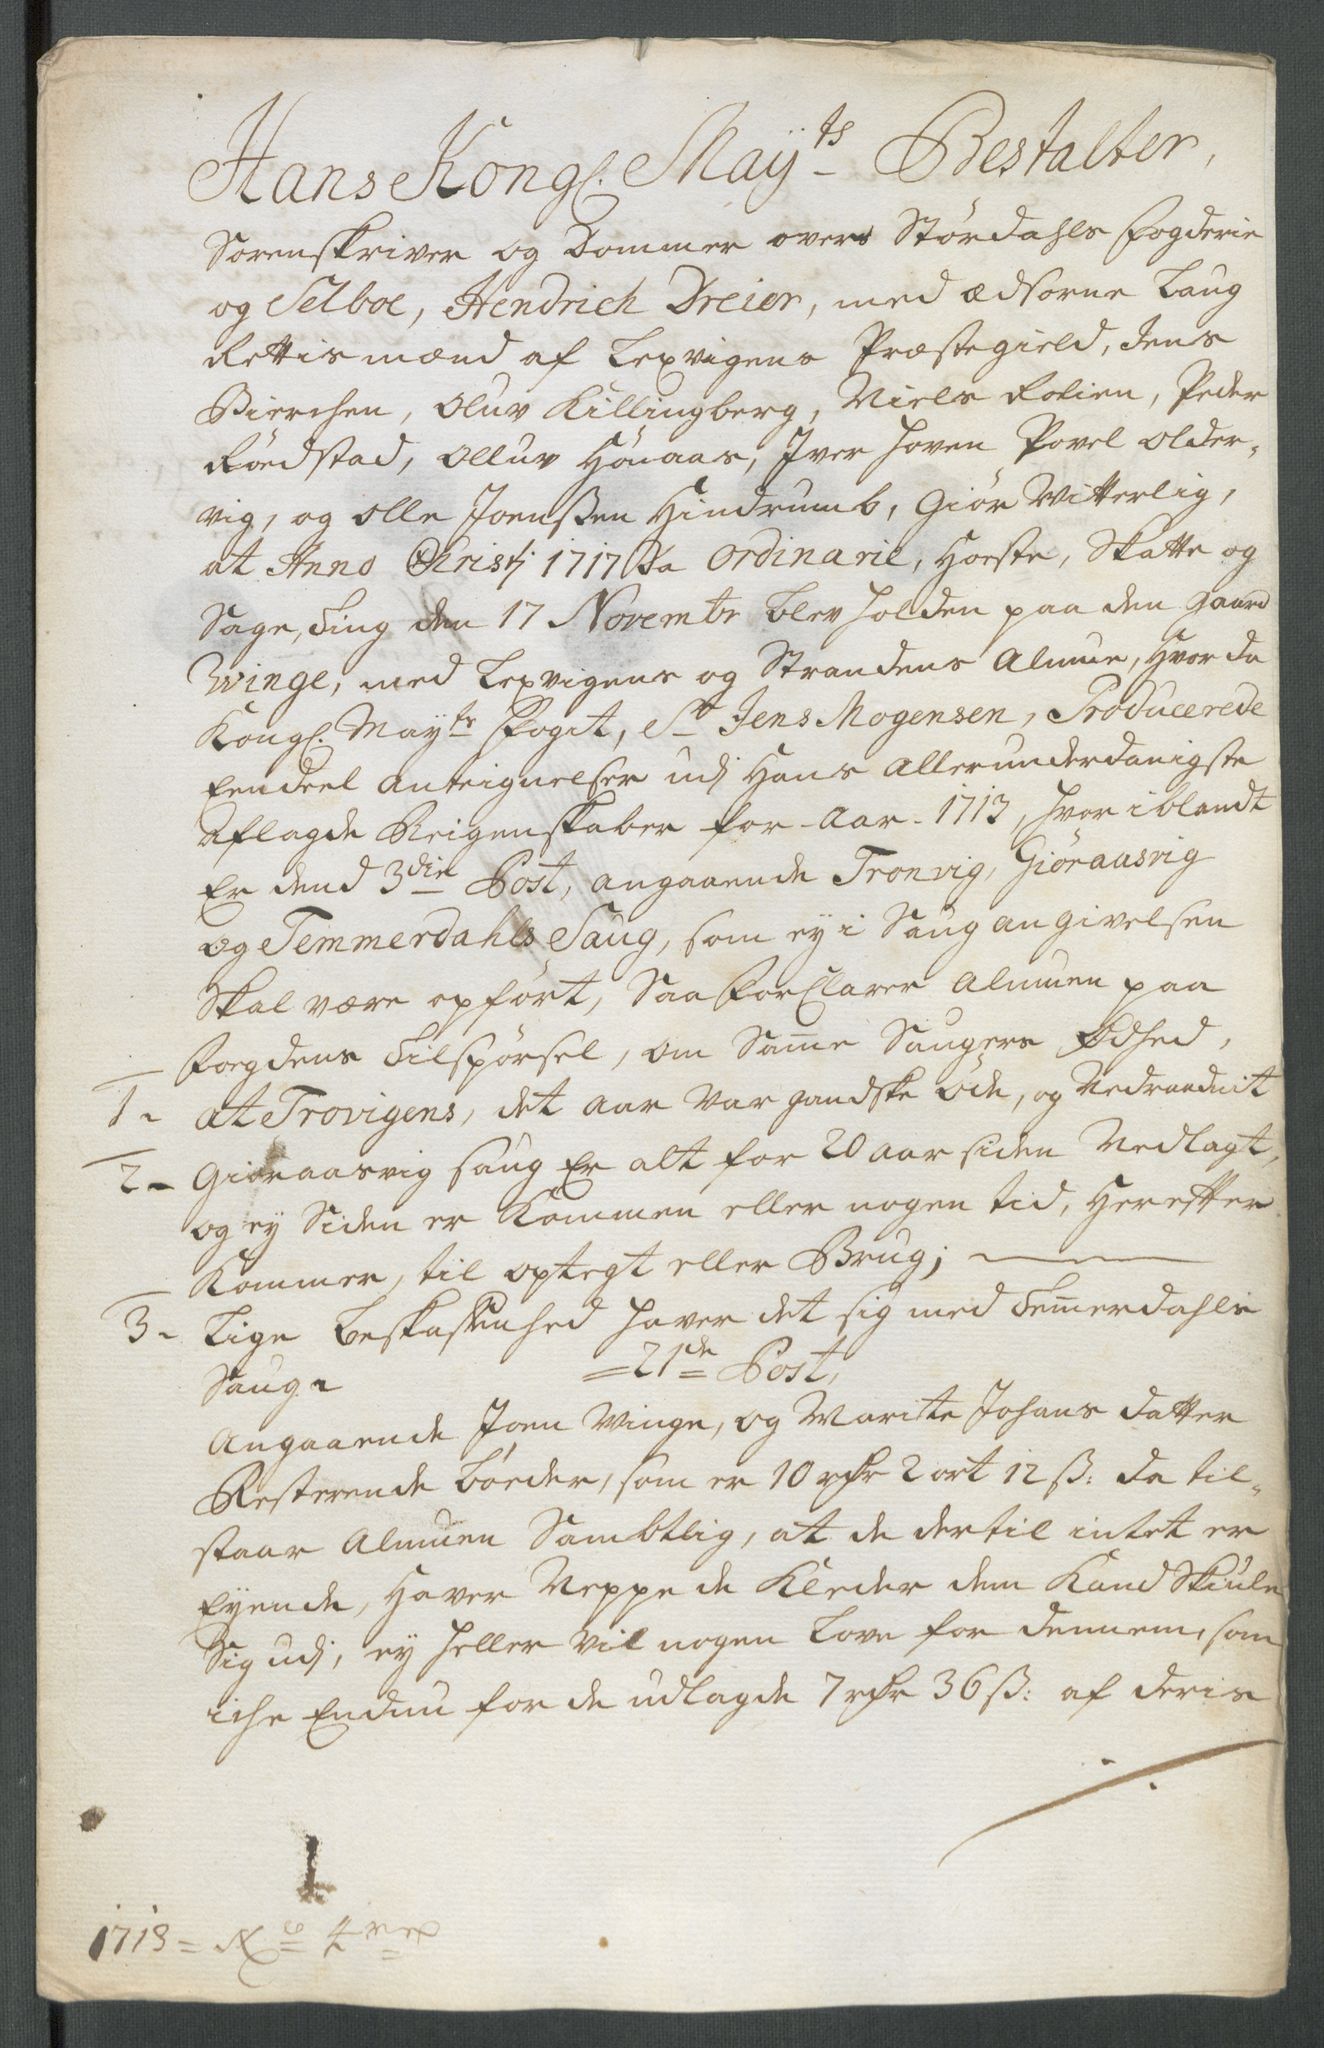 Hans Kongl. Mayts Bestalter,
Sorenskriver og Dommer over Stördahls fogderie
og Selboe, Hendrich Dreier, med ædsorne Laug
Rettismænd af Lexvigens Præstegield, Jens
Bierchen, Oluv Killingberg, Niels Rolien, Peder
Röedstad, Olluv Hönaas, Iver Hoven Povel Older-
vig, og Olle Joenssen Hindrumb, Giör Witterlig,
at Anno Christj 1717 Da Ordinarie, Höste, Skatte og
Sage, Ting den 17 Novembr blev holden paa den gaard
Winge, med Lexvigens og Strandens Almue, Hvor da
Kongl. Mayts Fogit, Sr Jens Mogensen, Producerede
Eendeel Anteignelser udj Hans Allerunderdanigste
Aflagde Reigenskaber for Aar 1713, hvor iblandt
Er dend 3die Post, angaaende Tronvig, Giöraasvig
og Temmerdahls Saug, som ey i Saug angivelsen
Skal være opfört, Saa forClarer Almuen paa
Fogdens Tilspörsel, om Same Saugers Ödhed,
1- at Trovigens, det aar var gandske öde, og Nedraadnit
2- Giöraasvig saug Er alt for 20 aar siden Nedlagt,
og ey Siden er Kommen eller nogen tid, Herefter
Kommer, til optegt eller Brug;
3- Lige beskaffenhed haver det sig med Temerdahls
Saug - = 21de Post,
Angaaende Joen Winge, og Marite Johans datter
Resterende böeder, som er 10 rdr 2 ort 12 ß: da til-
staar Almuen Sambtlig, at de dertil intet er
Eyende, Haver Neppe de Kleder dem Kand Skiule
Sig udj, ey heller vil nogen Love for dennem, som
iche Endnu for de udlagde 7 rdr 36 ß: af deris
1713 = No 4